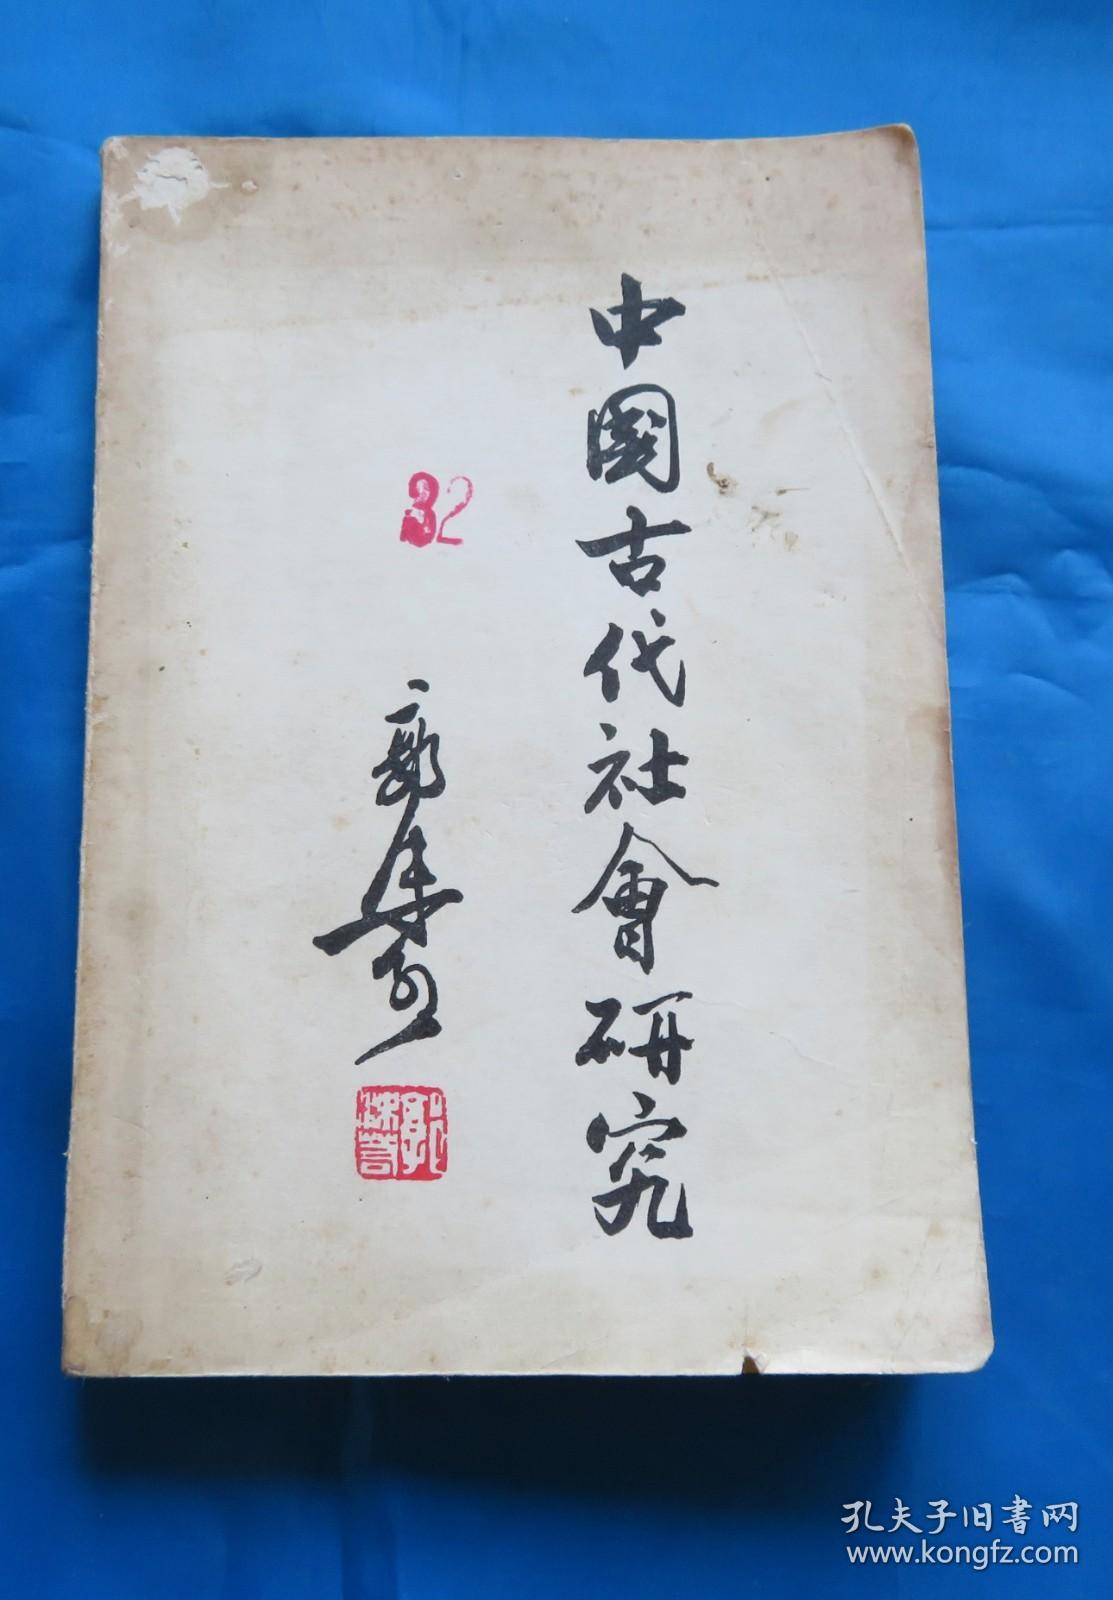 中國古代社會研究
32
郭沫若
郭沫若
孔夫子旧書网
www.kongfz.com